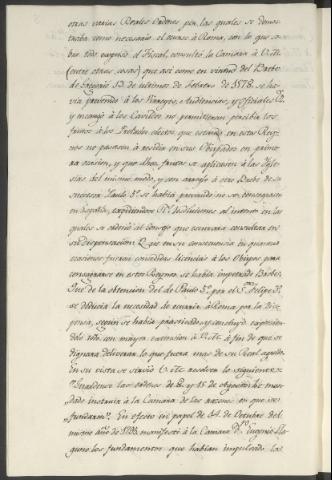 otras varias Reales Ordenes por las quales se demos-
traba como necesario el recurso à Roma, con lo que se
 el Fiscal, consultó la Camara à V. M.
(entre otras cosas) que así como en virtud del Breve
de Gregorio 13 de ultimos de Febrero de 1578. se ha-
via prevenido à los Virreyes, Audiencias, y Oficiales R.s
y encargo à los Cavildos no permitiesen percibir los
frutos à los Prelados electos que estando en estos Rey-
nos no pasasen à residir en sus Obispados en prime-
ra ocasion, y que dhos. frutos se aplicasen à las Igle-
sias del mismo modo, y con arreglo à otro Breve de su
sucesor Paulo 5.º se había prevenido no se consagrasen
en España, expidiendose R.s al intento en las
quales se ordenó al Consejo que escusara consultar en
su dispensacion: Que en su consecuencia en quantas
ocasiones fueron concedidas licencias à los Obispos para
consagrarse en estos Reynos, se había impetrado Breve:
Que de la obtencion del de Paulo 5.º por el S.or Felipe 3.º
se deducia la necesidad de acudir à Roma por la Dis-
pensa, segun se había practicado; y concluyó 
 todo con mayor extension à V. M. à fin de que se
dignara deliberar lo que fuera mas de su Real agrado.
En su vista se sirvió V. M. resolver lo siguiente:
Guardense las ordenes de 12, y 15 de Agosto 
 instruia à la Camara de las razones en que se
fundaron". En efecto en papel de 24 de Octubre del
mismo año de 1795. manifestó à la Camara D.n Eugenio Lla-
guno los fundamentos que habian impulsado las